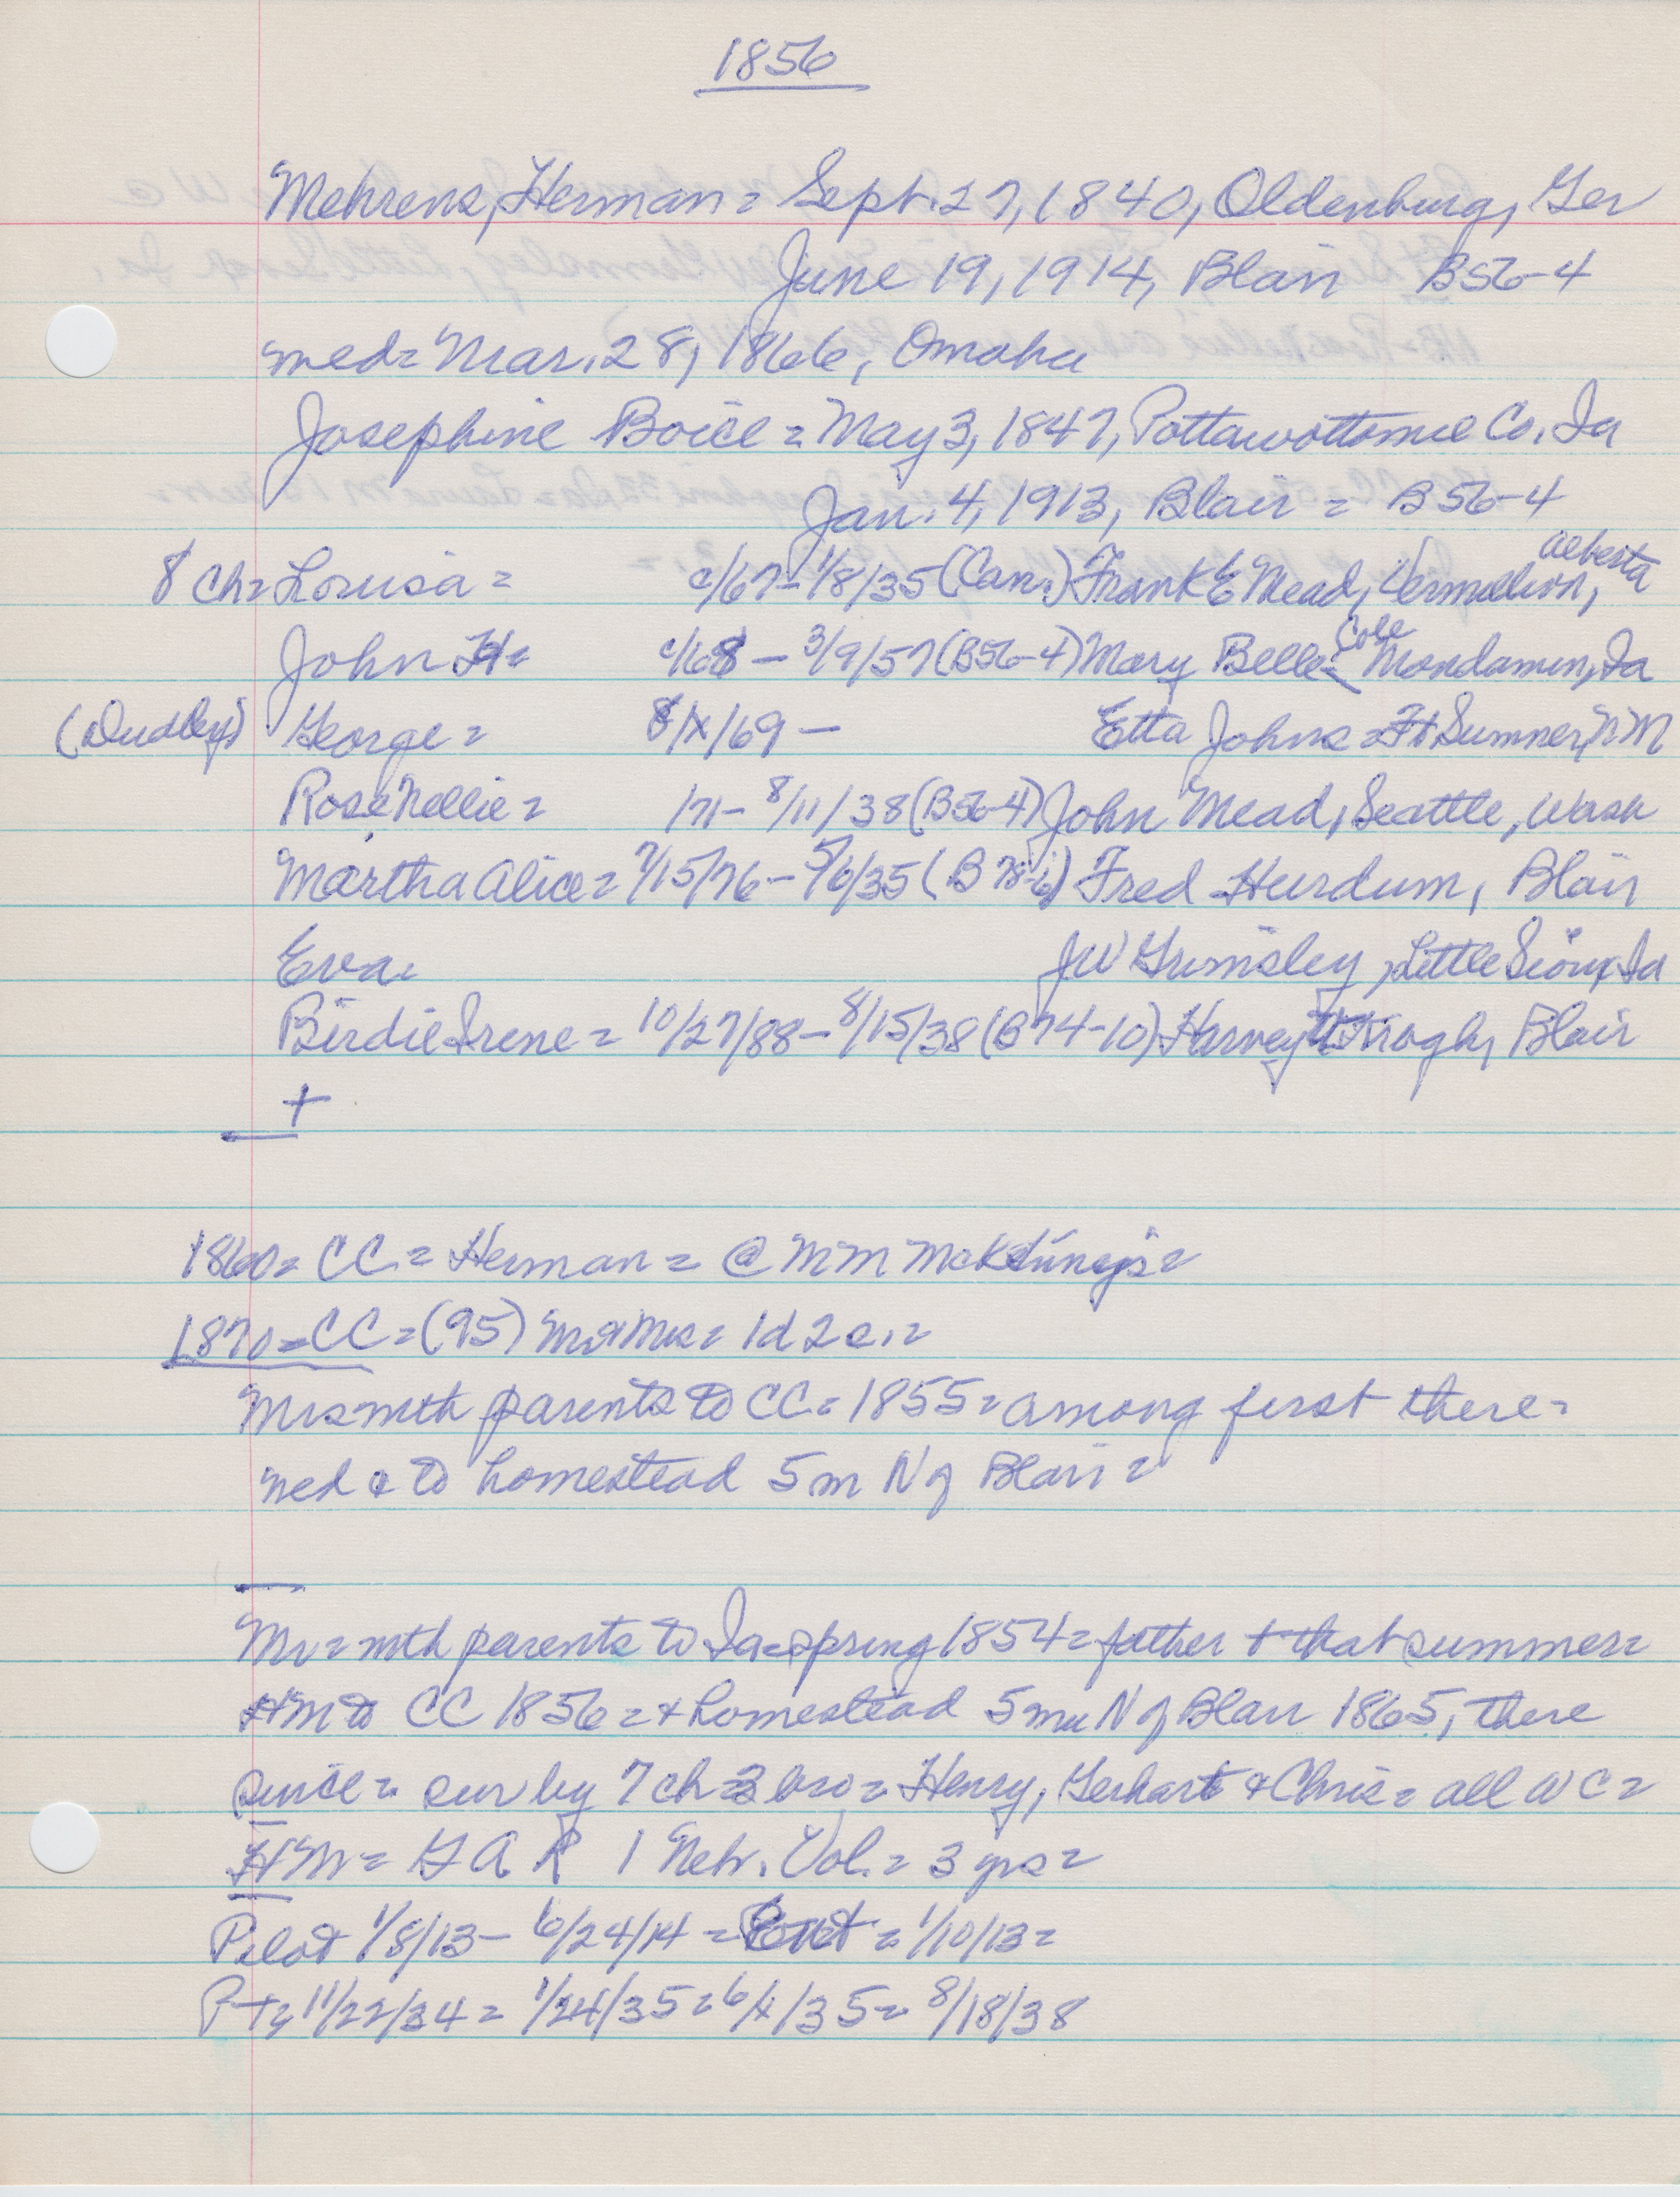 1856
Mehrens, Herman = Sept. 27, 1840, Oldenburg, Ger
June 19, 1914, Blair B56-4
med = Mar. 28, 1866, Omaha
Josephine Boice = May 3, 1847, Pottawottomie Co. Ia
Jan. 4, 1913, Blair = B56-4
8 Ch = Louisa = c/67 - 1/8/35 (Can.) Frank E Mead, Vermilion, Alberta
John H = c/68 - 3/9/57 (B56-4) Mary Belle Cole = Mondamin, Ia
(Dudley) George = 8/x/69 - Etta Johns = Ft Sumner, NM
Rose Nellie = /71 - 8/11/38 (B56-4) John Mead, Seattle, Wash
Martha Alice = 7/15/76 - 5/6/35 (B 78-6) Fred Hurdum, Blair
Eva = JW Grimsley, Little Sioux, Ia
Birdie Irene = 10/27/88 - 8/15/38 (B74-10) Harvey Krogh, Blair
+
1860 = CC = Herman = @ MM
1870 = CC = (95) Mr & Mrs = 1d 2s. =
Mrs with parents to CC = 1855 = among first there =
med & to homestead 5m N of Blair =
Mr = with parents to Ia = spring 1854 = father + that summer =
HM to CC 1856 = + homestead 5 mi N of Blair 1865, there
since = sur by 7 ch = 3 bro = Henry, Gerhart & Chris = all WC =
HM = GAR 1 Nebr. Vol. = 3 yrs =
Pilot 1/8/13 - 6/24/14 = = 1/10/13 =
PT = 11/22/34 = 1/24/35 = 6/x/35 = 8/18/38